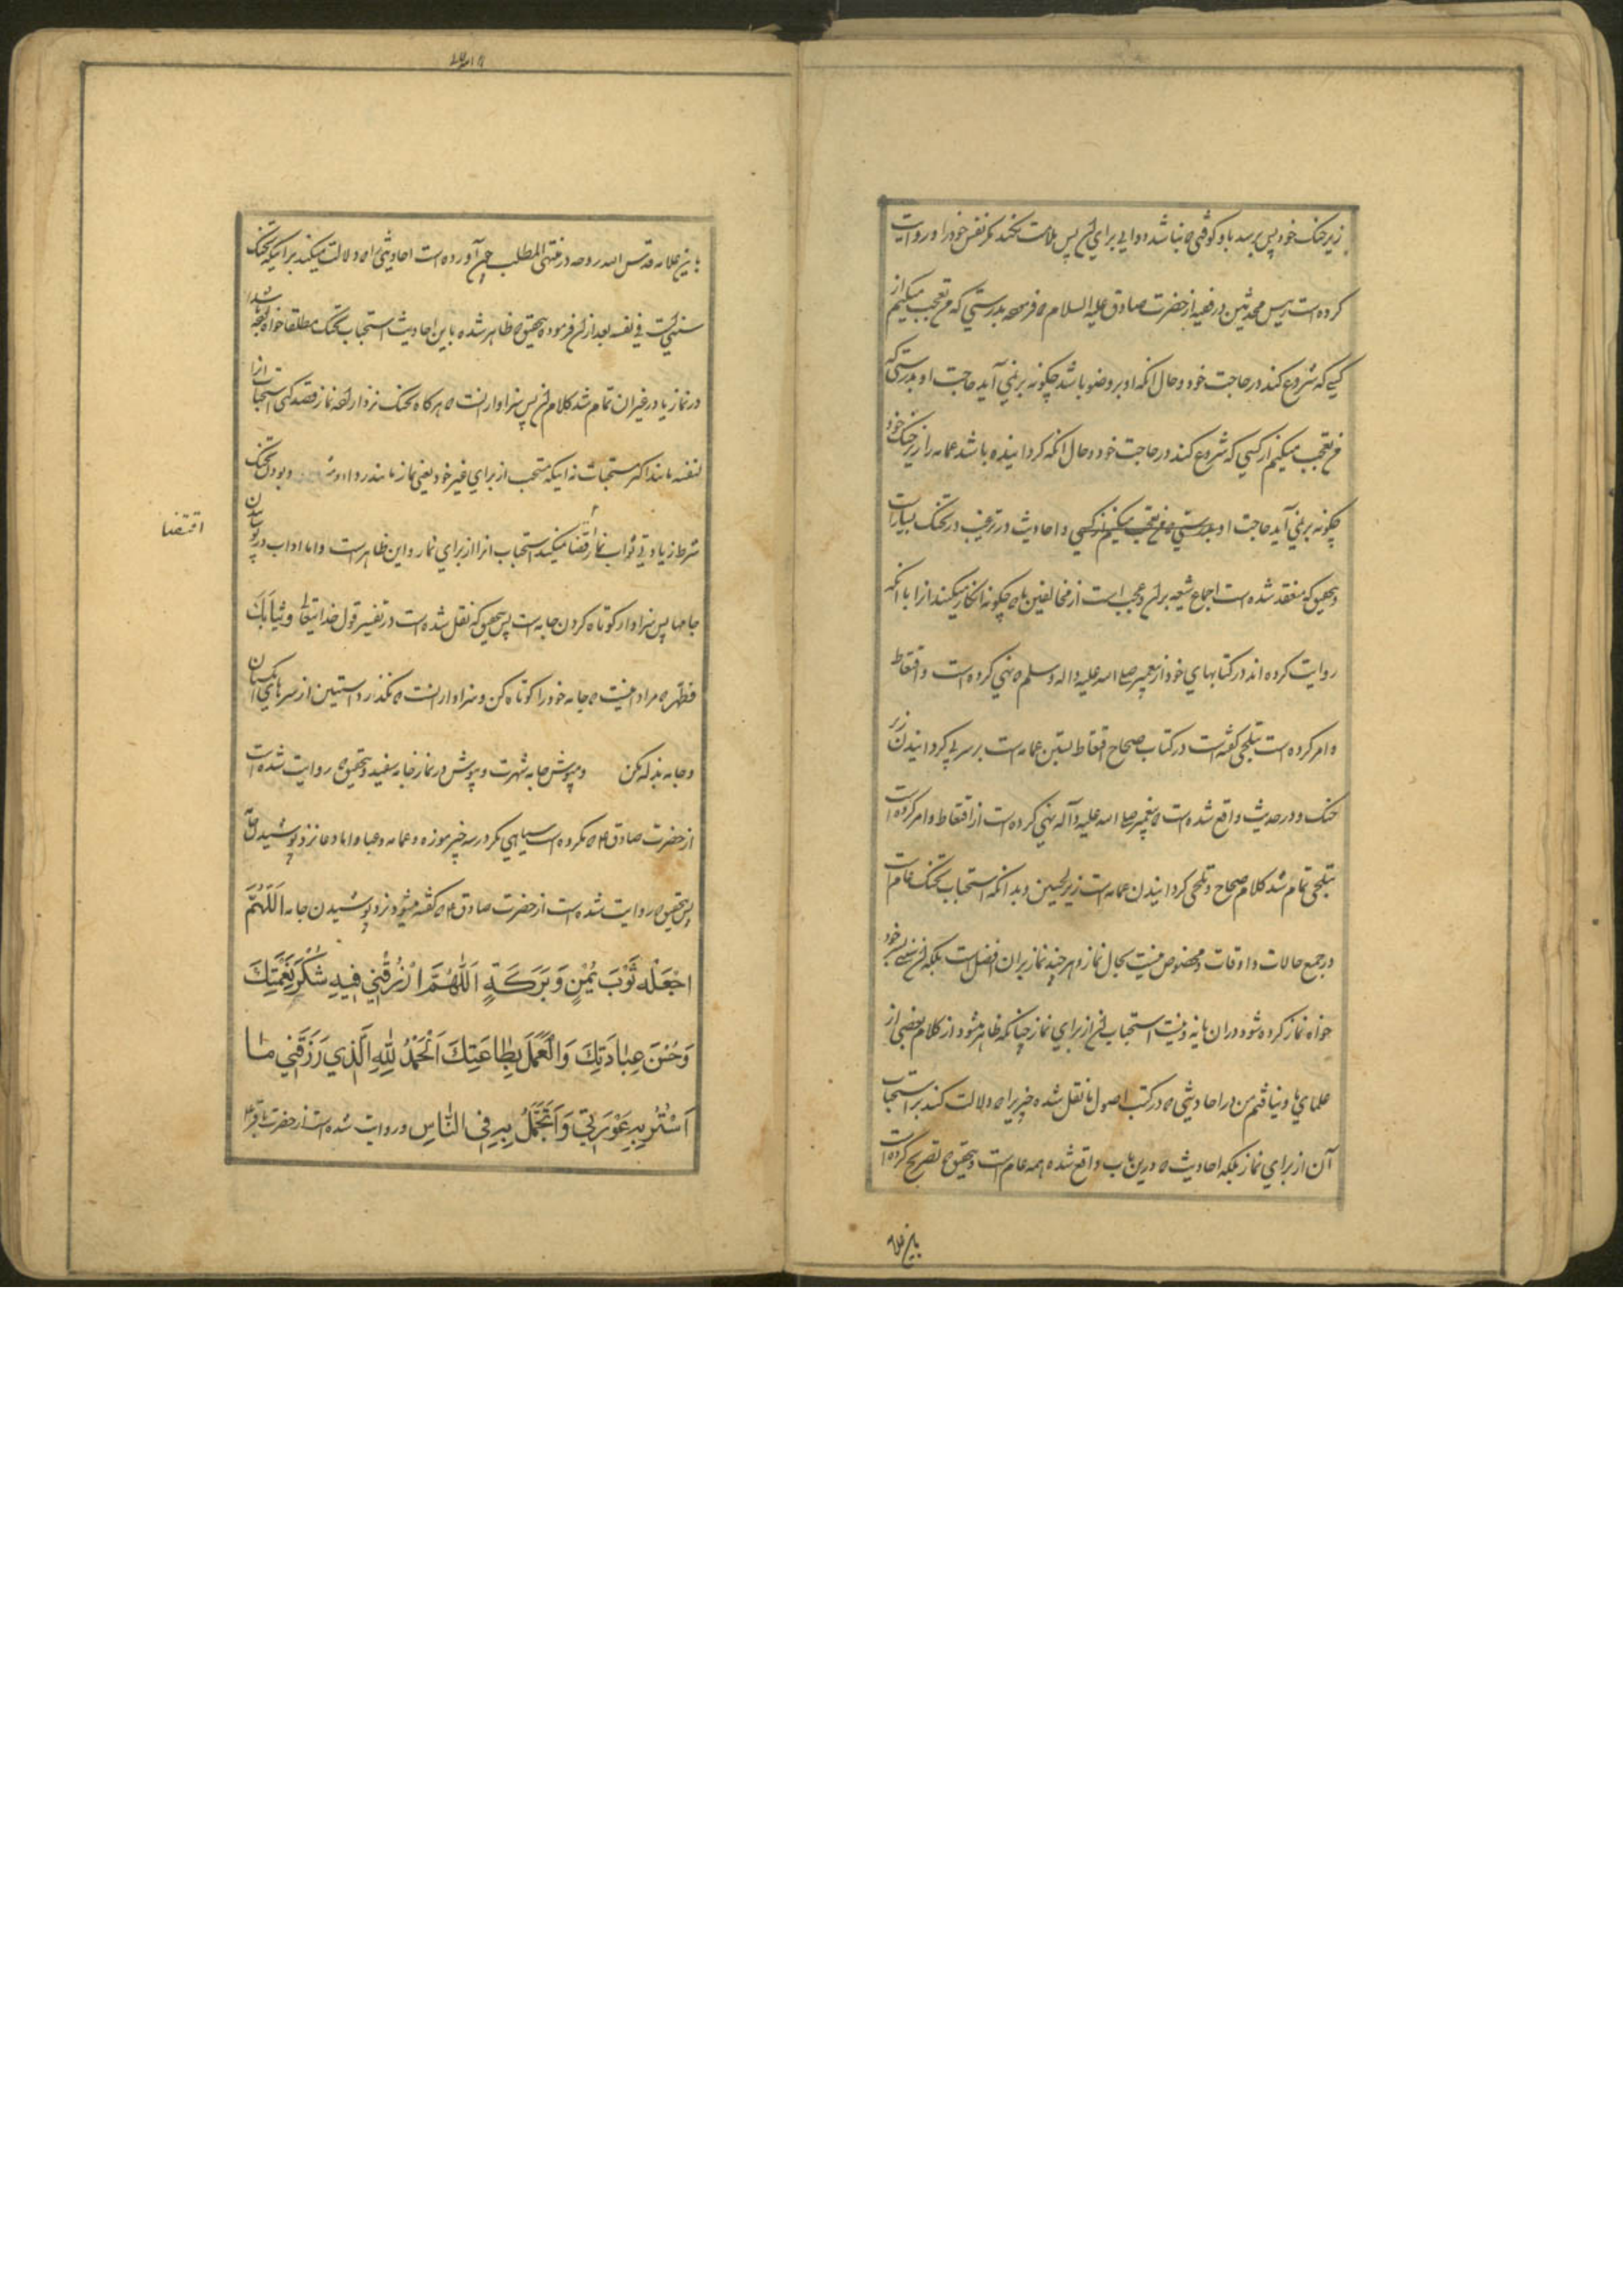 زیر حنک خود پس برسد باو کوفتی که نباشد دوایی برای آن پس ملامت نکند مکر نفس خود را و روایت
کرده است رییس محدثین در فقیه از حضرت صادق علیه السلام که فرموده بدرستی که من تعجب میکنیم از
کسی که شروع کند در حاجت خود و حال انکه او بر وضو باشد چکونه بر نمی آید حاجت او بدرستی که
من تعجب میکنیم از کسی که شروع کند در حاجت خود و حال انکه کردانیده باشد عمامه را زیر حنک خود
چکونه بر نمی آید حاجت او بدرستی که من تعجب میکنیم از کسی و احادیث در ترغیب در تحنک بسیار است
و بتحقیق که منعقد شده است اجماع شیعه بر آن و عجب است از مخالفین ما که چکونه انکار میکنند انرا با انکه
روایت کرده اند در کتابهای خود از پیغمبر صلی الله علیه واله وسلم که نهی کرده است و اقتعاط
و امر کرده است بتلحی کفته است در کتاب صحاح اقتعاط بستن عمامه است بر سر بی کردانیدن زیر
حنک و در حدیث واقع شده است که پیغمبر صلی الله علیه وآله نهی کرده است از اقتعاط و امر کرده است
بتلحی تمام شد کلام صحاح و تلحی کردانیدن عمامه است زیر لحیین و بدانکه استحباب تحنک عام است
در جمیع حالات و اوقات و مخصوص نیست بحال نماز و هر چند نماز بر آن افضل است بلکه آن سنتی بسر خود
خواه نماز کرده شود در ان یا نه و نیست استحباب آن از برای نماز چنانکه ظاهر میشود از کلام بعضی از
علمای ما و نیافتم من در احادیثی که در کتب اصول ما نقل شده چیزی را که دلالت کند بر استحباب
آن از برای نماز بلکه احادیث که درین باب واقع شده همه عام است و بتحقیق که تصریح کرده است
باین علامه
باین علامه قدس الله روحه در منتهی المطلب چون آورده است احادیثی را که دلالت میکنند بر اینکه تحنک
سنتی است فی نفسه بعد از آن فرموده بتحقیق که ظاهر شده باین احادیث استحباب تحنک مطلقا خواه بوده باشد
در نماز یا در غیر ان تمام شد کلام آن پس سزاوار انست که هرکاه تحنک نزد اراده نماز قصد کنی استحباب انرا
لنفسه مانند اکثر مستحبات نه اینکه مستحب از برای غیر خود یعنی نماز مانند ردا و بودن تحنک
شرط زیادتی ثواب نماز اقتضا نمیکند استحباب انرا از برای نماز و این ظاهر است و اما اداب در پوشیدن
اقتضا
جامها پس سزاوار کوتاه کردن جامه است پس بتحقیق که نقل شده است در تفسیر قول خدایتعالی وَثِیابَكَ
فطهر که مراد اینست که جامه خود را کوتاه کن و سزاوار انست که نکذرد استین از سرهای انکشتان
و جامه بذله مکن و مپوش جامه شهرت و بپوش در نماز جامه سفید و بتحقیق که روایت شده است
از حضرت صادق ع که مکروه است سیاهی مکر در سه چیز موزه و عمامه و عبا و اما دعا نزد پوشیدن جامه
پس بتحقیق که روایت شده است از حضرت صادق ع که کفته میشود نزد پوشیدن جامه اَللّٰهُمَّ
اجْعَلْهُ ثَوْبَ یُمْنٍ وَبَرَکَةٍ اَللّٰهُمَّ ارْزُقْنِی فِیهِ شُکْرَ نِعْمَتِكَ
وَحُسْنَ عِبَادَتِكَ وَالْعَمَلَ بِطَاعَتِكَ اَلْحَمْدُ لِلّٰهِ الَّذِی رَزَقَنِی مَا
اَسْتُرُ بِهِ عَوْرَتِی وَاَتَجَمَّلُ بِهِ فِی النَّاسِ و روایت شده است از حضرت باقر ع